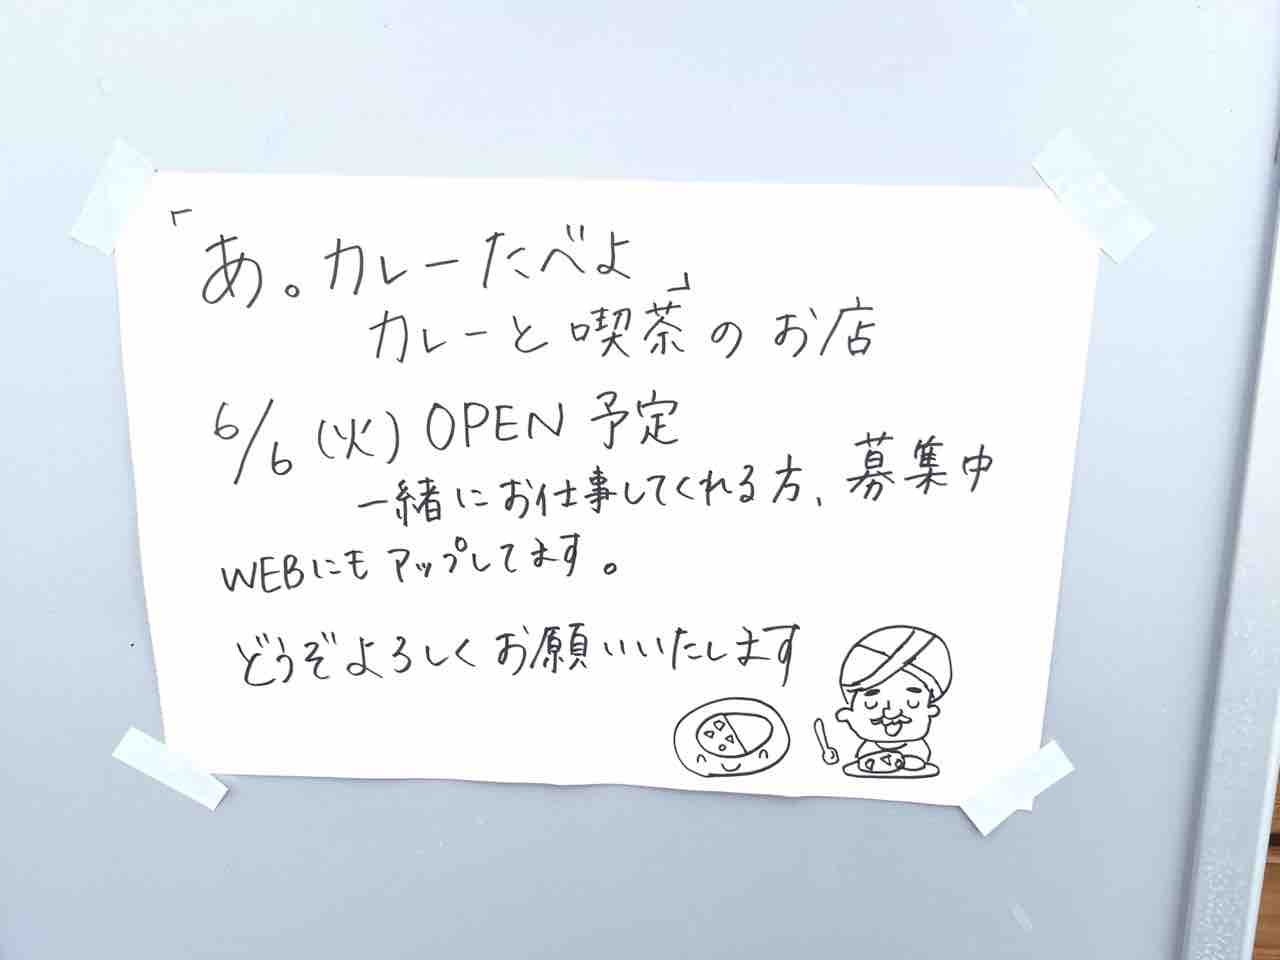 「あ。カレーたべよ」
カレーと喫茶のお店
6/6(火) OPEN 予定
一緒にお仕事してくれる方、募集中
WEBにもアップしてます。
どうぞよろしくお願いいたします